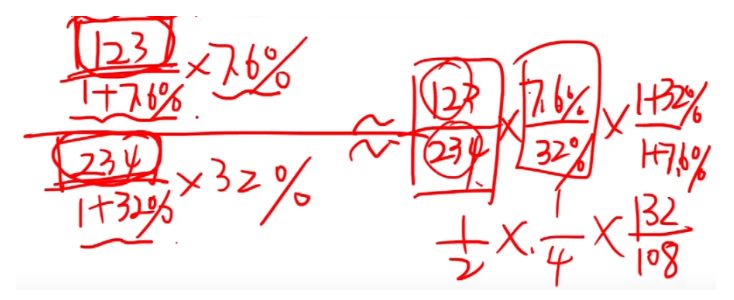 123/(1+7.6%) × 7.6%
234/(1+32%) × 32%
≈ 123/234 × 7.6%/32% × (1+32%)/(1+7.6%)
1/2 × 1/4 × 132/108